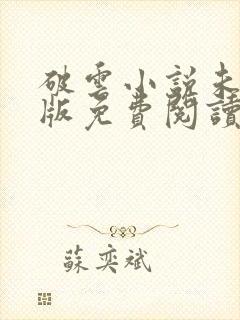 破雲小說未
版免費閱讀
蘇奕斌